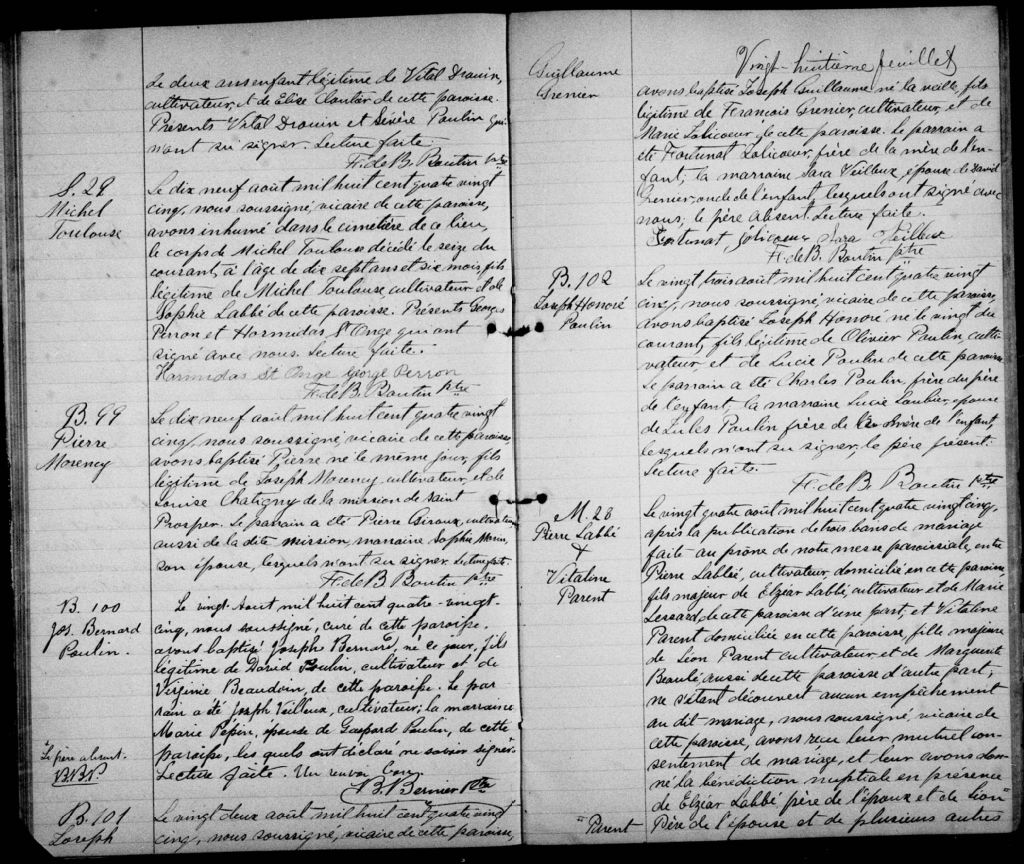 de deux ans enfant légitime de Vital Drouin,
cultivateur, et de Elise Cloutier de cette paroisse.
Présents Vital Drouin et Sévère Poulin qui
n'ont su signer. Lecture faite.
F. de B. Boutin ptre
S. 29
Michel
Toulouse
Le dix neuf août mil huit cent quatre vingt
cinq, nous soussigné, vicaire de cette paroisse,
avons inhumé dans le cimetière de ce lieu,
le corps de Michel Toulouse décédé le seize du
courant, à l'âge de dix sept ans et six mois, fils
légitime de Michel Toulouse, cultivateur, et de
Sophie Labbé de cette paroisse. Présents Georges
Perron et Hormidas St Onge qui ont
signé avec nous. Lecture faite.
Hormidas St Onge George Perron
F. de B. Boutin ptre
B. 99
Pierre
Morency
Le dix neuf août mil huit cent quatre vingt
cinq, nous soussigné vicaire de cette paroisse,
avons baptisé Pierre né le même jour, fils
légitime de Joseph Morency, cultivateur, et de
Louise Chatigny de la mission de Saint
Prosper. Le parrain a été Pierre Giroux, cultivateur
aussi de la dite mission, marraine Sophie Morin,
son épouse, lesquels n'ont su signer. Lecture faite.
F. de B. Boutin ptre
B. 100
Jos. Bernard
Poulin.
Le vingt août mil huit cent quatre-vingt-
cinq, nous soussigné, curé de cette paroisse,
avons baptisé Joseph Bernard, né ce jour, fils
légitime de David Poulin, cultivateur et de
Virginie Beaudoin, de cette paroisse. Le par
rain a été Joseph Veilleux, cultivateur; la marraine
Marie Pépin, épouse de Gaspard Poulin, de cette
paroisse, les quels ont déclaré ne savoir signer.
" Le père absent.
BBP
Lecture faite. Un renvoi bon.
B. Bernier Ptre
B. 101
Joseph
Le vingt deux août mil huit cent quatre vingt
cinq, nous soussigné, vicaire de cette paroisse,
Vingt-huitième feuillet
Guillaume
Grenier
avons baptisé Joseph Guillaume né la veille, fils
légitime de François Grenier, cultivateur, et de
Marie Jolicoeur, de cette paroisse. Le parrain a
été Fortunat Jolicoeur, frère de la mère de l'en-
fant, la marraine Sara Veilleux, épouse de David
Grenier, oncle de l'enfant, lesquels ont signé avec
nous, le père absent. Lecture faite.
Fortunat Jolicoeur Sara Veilleux
F. de B. Boutin ptre
B. 102
Joseph Honoré
Poulin
Le vingt trois août mil huit cent quatre vingt
cinq, nous soussigné, vicaire de cette paroisse,
avons baptisé Joseph Honoré né le vingt du
courant, fils légitime de Olivier Poulin, culti-
vateur, et de Lucie Poulin de cette paroisse
Le parrain a été Charles Poulin frère du père
de l'enfant, la marraine Lucie Loubier, épouse
de Jules Poulin frère de la mère de l'enfant,
lesquels n'ont su signer, le père présent.
Lecture faite.
F. de B. Boutin ptre
M. 28
Pierre Labbé
&
Vitaline
Parent
Le vingt quatre août mil huit cent quatre vingt cinq,
après la publication de trois bans de mariage
faite au prône de notre messe paroissiale, entre
Pierre Labbé, cultivateur, domicilié en cette paroisse
fils majeur de Elzéar Labbé, cultivateur et de Marie
Lessard, de cette paroisse d'une part, et Vitaline
Parent domiciliée en cette paroisse, fille majeure
de Léon Parent cultivateur, et de Marguerite
Beaulé, aussi de cette paroisse d'autre part;
ne s'étant découvert aucun empêchement
au dit mariage, nous soussigné, vicaire de
cette paroisse, avons reçu leur mutuel con-
sentement de mariage, et leur avons don-
né la bénédiction nuptiale en présence
de Elzéar Labbé père de l'époux et de Léon "
" Parent
Père de l'épouse et de plusieurs autres